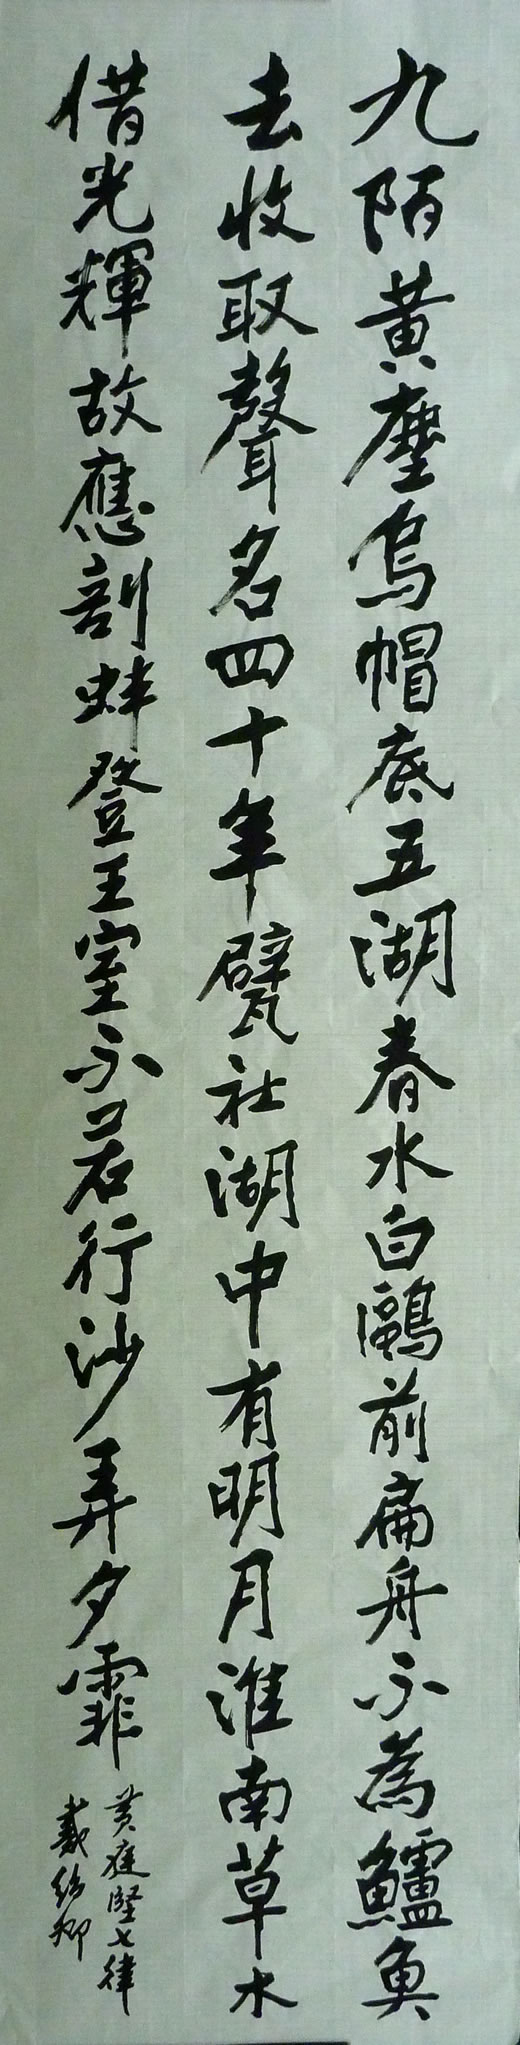 九陌黃塵烏帽底五湖春水白鷗前扁舟不為鱸魚
去收取聲名四十年甓社湖中有明月淮南草木
借光輝故應剖蚌登王室不若行沙弄夕霏
黄庭堅七律
戴